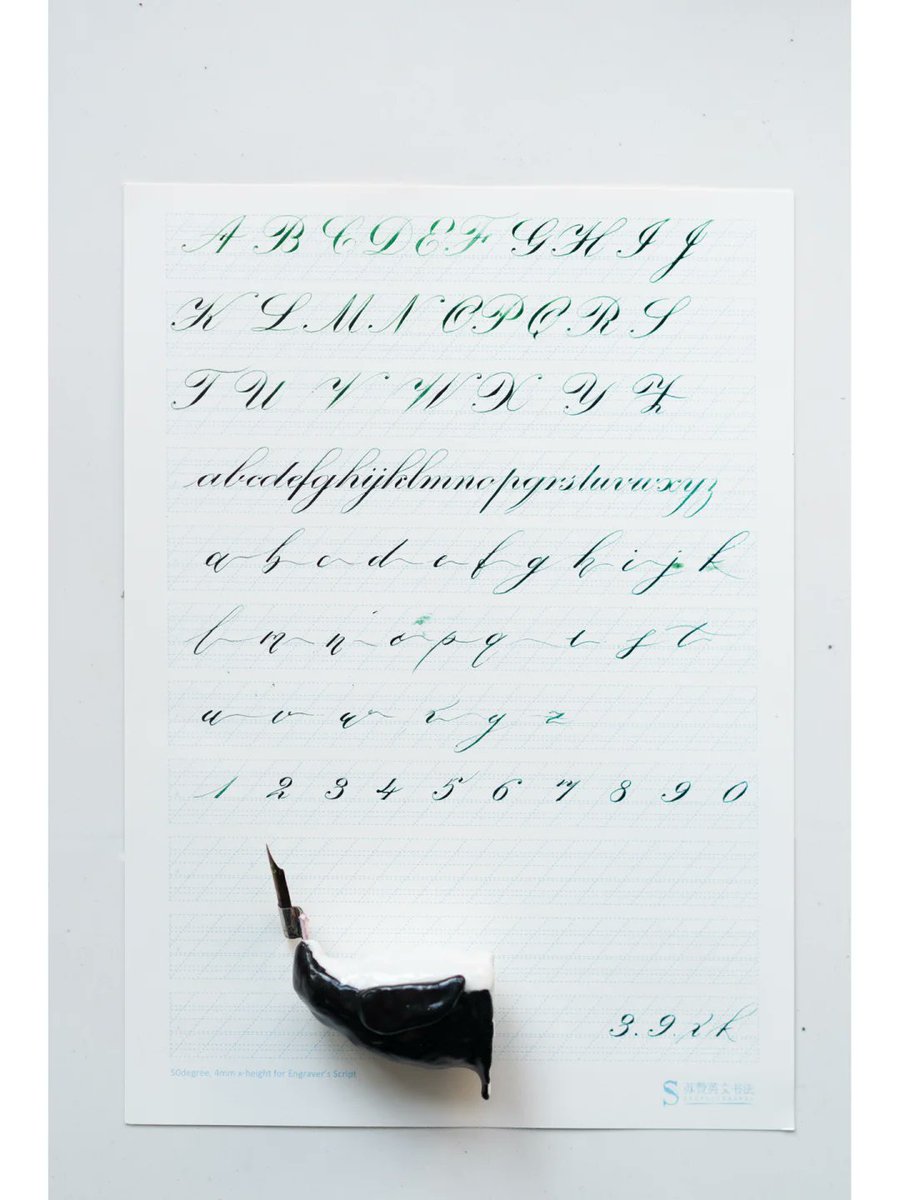 A B C D E F G H I J
K L M N O P Q R S
T U V W X Y Z
abcdefghijklmnopqrstuvwxyz
a b c d e f g h i j k
l m n o p q r s t
u v w x y z
1 2 3 4 5 6 7 8 9 0
3.9.xk
50degree, 4mm x-height for Engraver's Script
英文书法